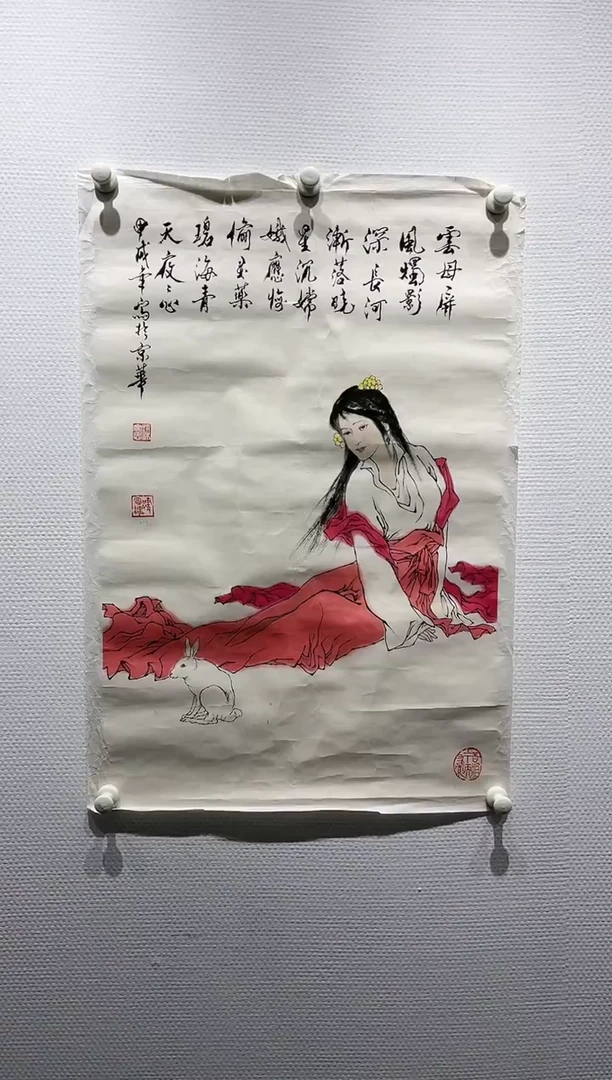 雲母屏
風燭影
深長河
漸落曉
星沉嫦
娥應悔
偷灵藥
碧海青
天夜〻心
甲戌年寫於京華